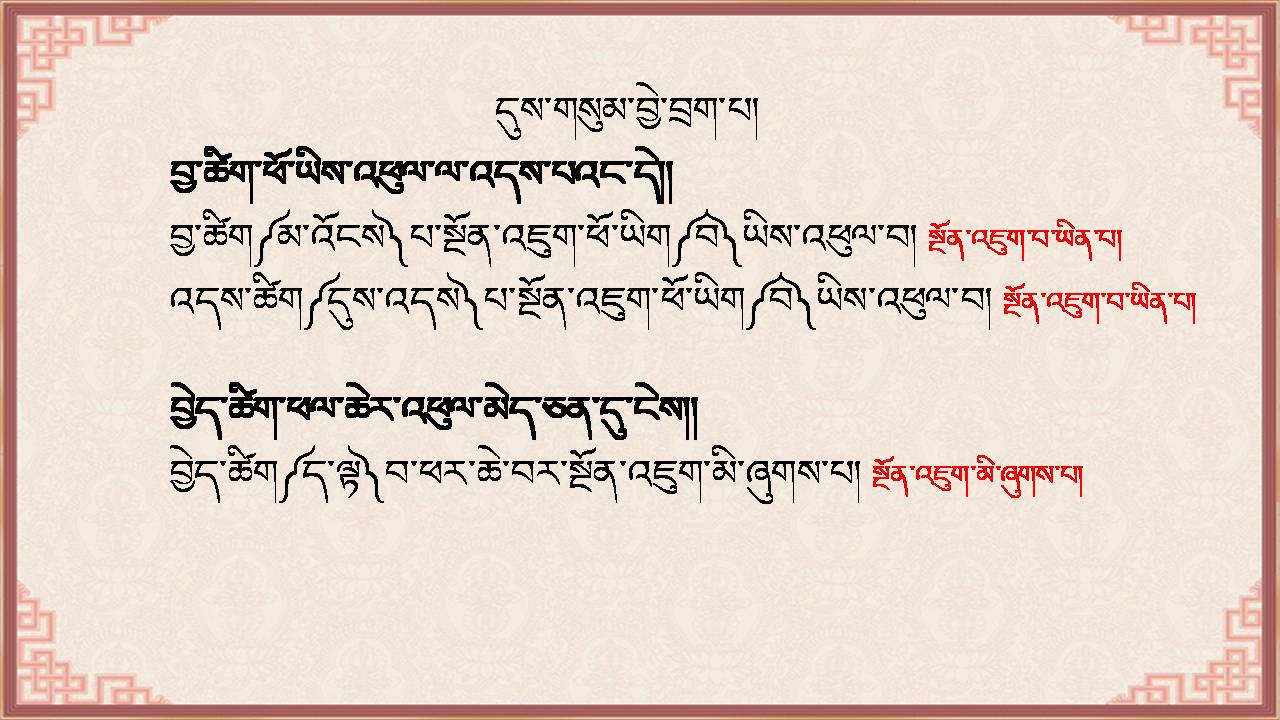 དུས་གསུམ་བྱེ་བྲག་པ།
བྱ་ཚིག་ཕོ་ཡིས་འཕུལ་ལ་འདས་པའང་དེ།།
བྱ་ཚིག༼མ་འོངས༽པ་སྔོན་འཇུག་ཕོ་ཡིག༼བ༽ཡིས་འཕུལ་བ། སྔོན་འཇུག་བ་ཡིན་པ།
འདས་ཚིག༼དུས་འདས༽པ་སྔོན་འཇུག་ཕོ་ཡིག༼བ༽ཡིས་འཕུལ་བ། སྔོན་འཇུག་བ་ཡིན་པ།
བྱེད་ཚིག་ཕལ་ཆེར་འཕུལ་མེད་ཅན་དུ་ངེས།།
བྱེད་ཚིག༼ད་ལྟ༽བ་ཕར་ཆེ་བར་སྔོན་འཇུག་མི་ཞུགས་པ། སྔོན་འཇུག་མི་ཞུགས་པ།